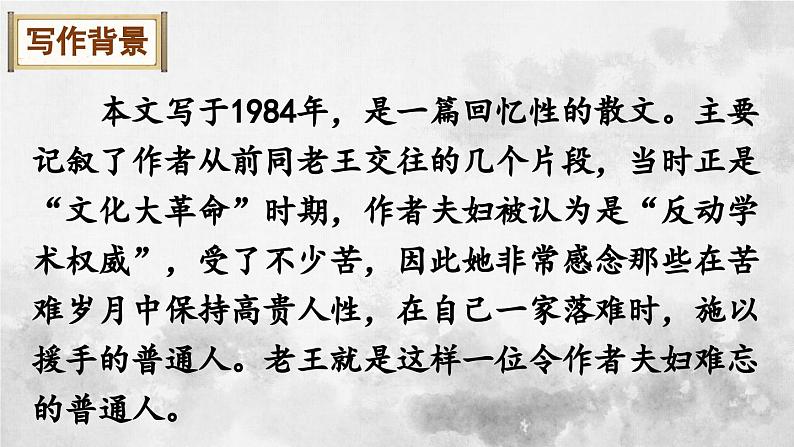 写作背景
本文写于1984年，是一篇回忆性的散文。主要
记叙了作者从前同老王交往的几个片段，当时正是
“文化大革命”时期，作者夫妇被认为是“反动学
术权威”，受了不少苦，因此她非常感念那些在苦
难岁月中保持高贵人性，在自己一家落难时，施以
援手的普通人。老王就是这样一位令作者夫妇难忘
的普通人。